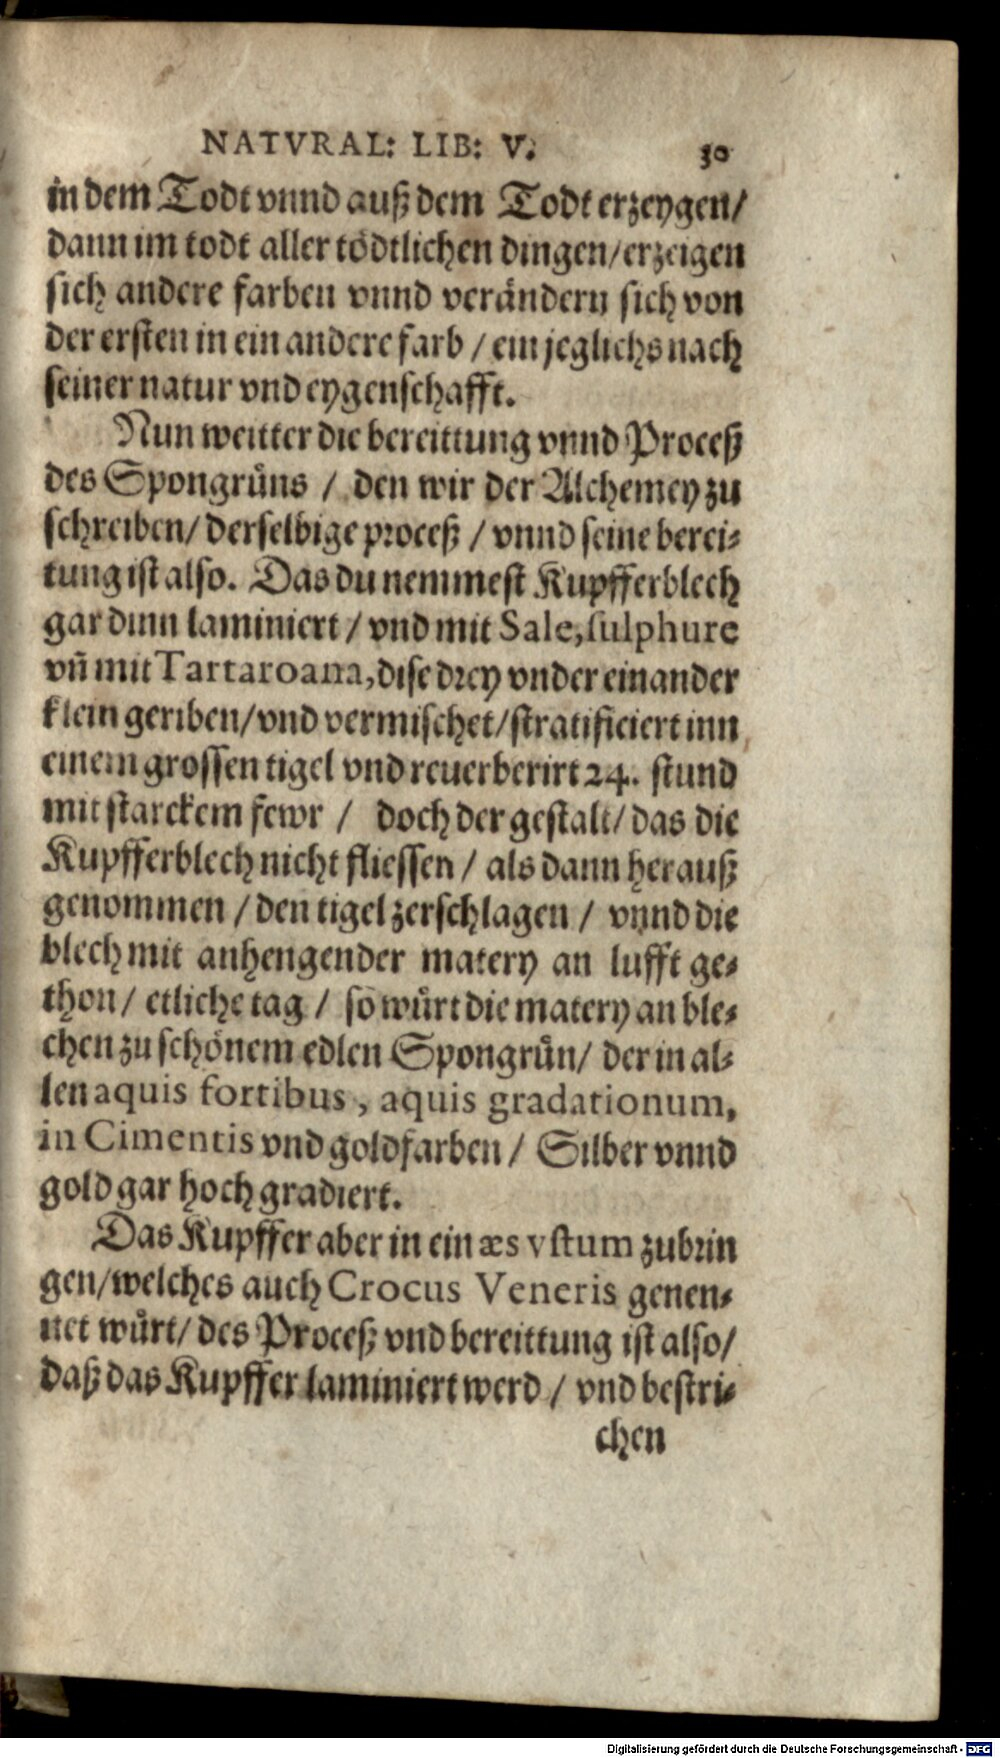 NATVRAL: LIB: V. 30
in dem Todt vnnd auß dem Todt erzeygen/
dann im todt aller tödtlichen dingen/erzeigen
sich andere farben vnnd verändern sich von
der ersten in ein andere farb / ein jeglichs nach
seiner natur vnd eygenschafft.
Nun weitter die bereittung vnnd Proceß
des Spongrůns / den wir der Alchemey zu
schreiben/ derselbige proceß / vnnd seine berei-
tung ist also. Das du nemmest Kupfferblech
gar dinn laminiert / vnd mit Sale, sulphure
vñ mit Tartaro ana, dise drey vnder einander
klein geriben/vnd vermischet/stratificiert inn
einem grossen tigel vnd reuerberirt 24. stund
mit starckem fewr / doch der gestalt/ das die
Kupfferblech nicht fliessen / als dann herauß
genommen / den tigel zerschlagen / vnnd die
blech mit anhengender matery an lufft ge-
thon/ etliche tag / so wůrt die matery an ble-
chen zu schönem edlen Spongrůn/ der in al-
len aquis fortibus, aquis gradationum,
in Cimentis vnd goldfarben / Silber vnnd
gold gar hoch gradiert.
Das Kupffer aber in ein æs vstum zubrin
gen/welches auch Crocus Veneris genen-
net wůrt/ des Proceß vnd bereittung ist also/
daß das Kupffer laminiert werd / vnd bestri-
chen
Digitalisierung gefördert durch die Deutsche Forschungsgemeinschaft - DFG